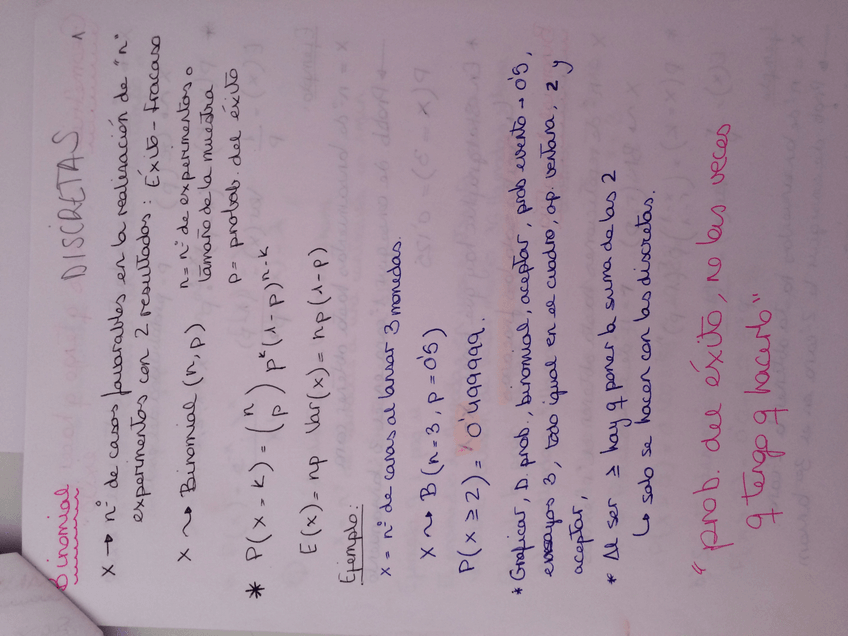 Binomial DISCRETAS 1
X → nº de casos favorables en la realización de "n"
experimentos con 2 resultados: Éxito - fracaso
X ~> Binomial (n, p) n = nº de experimentos o
tamaño de la muestra
p = probab. del éxito
* P(x = k) = (n p) p^k (1-p)^n-k
E(x) = np Var(x) = np(1-p)
Ejemplo:
x = nº de caras al lanzar 3 monedas.
X ~> B(n=3, p=0'5)
P(x ≥ 2) = 0'499999.
* Graficar, D. prob., binomial, aceptar, prob evento → 0'5,
ensayos 3, todo igual en el cuadro, op. ventana, 2 y
aceptar,
* Al ser ≥ hay q poner la suma de las 2
↳ solo se hacen con las discretas.
"prob. del éxito, no las veces
q tengo q hacerlo"